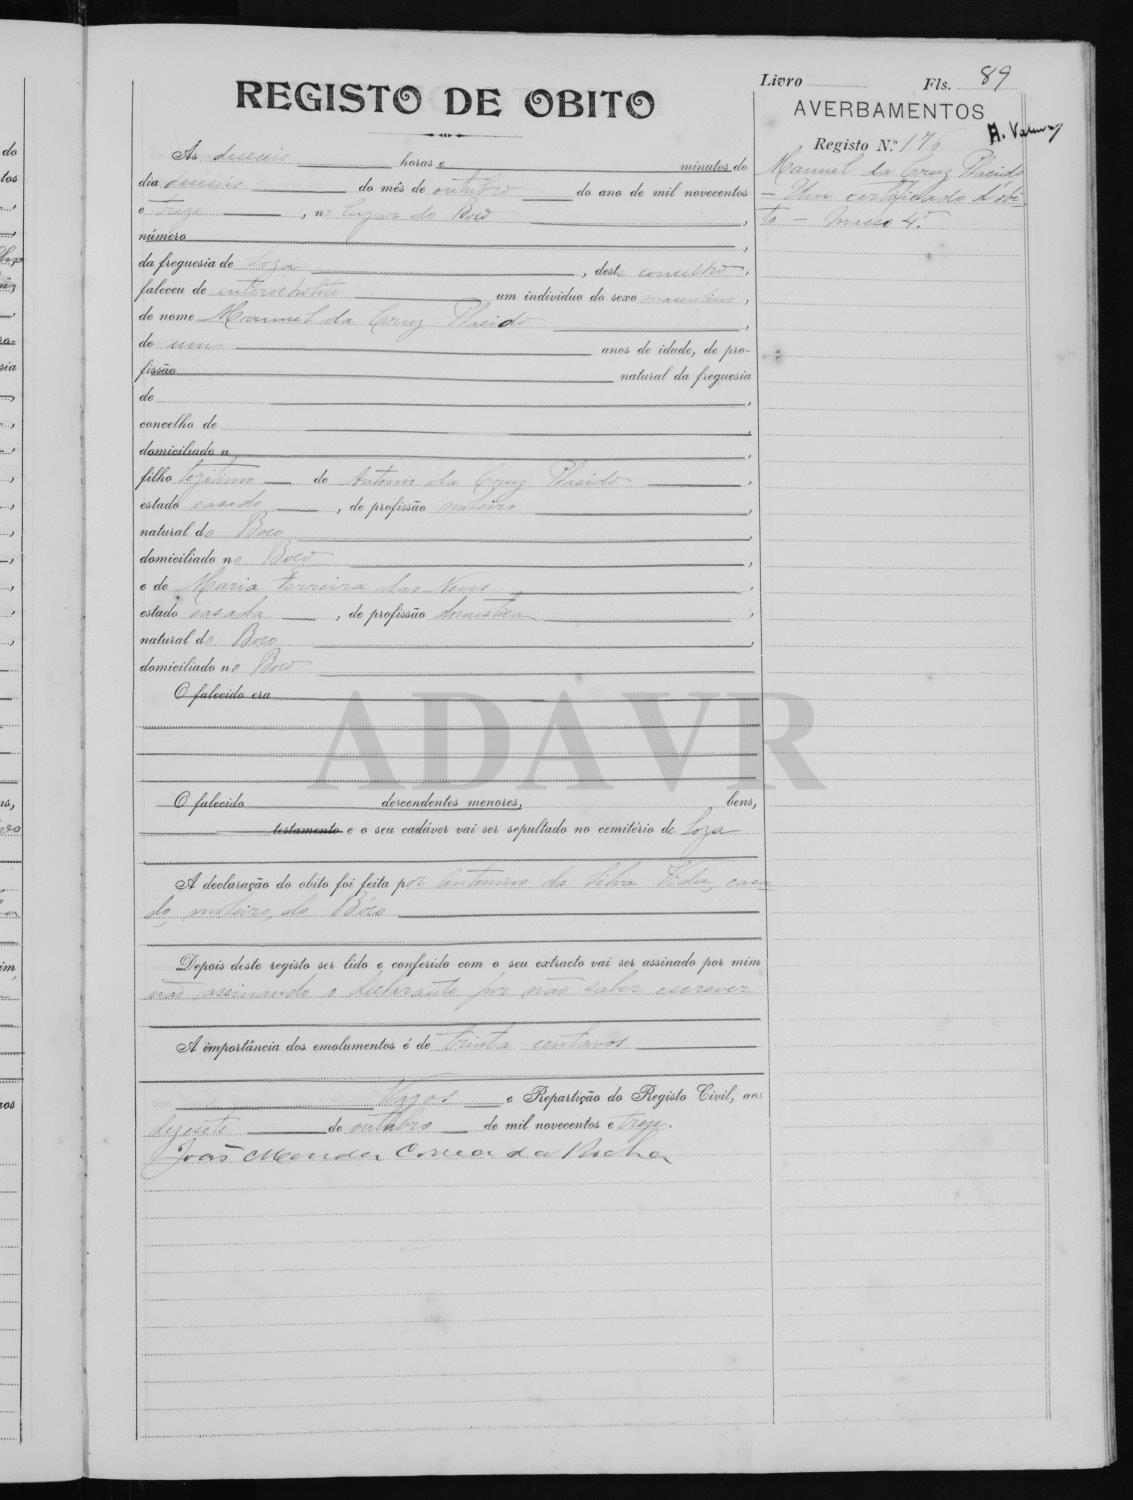 Livro Fls. 89
REGISTO DE OBITO
AVERBAMENTOS
Registo N.º 176
Manuel da Cruz Placido
— Um certificado d'obi-
to — Masso 4.º
Ás deseseis horas e minutos do
dia deseseis do mês de outubro do ano de mil novecentos
e treze, no lugar do Boco,
número,
da freguesia de Soza, deste concelho,
faleceu de enterocolite um individuo do sexo masculino,
de nome Manuel da Cruz Placido,
de um anos de idade, de pro-
fissão natural da freguesia
de,
concelho de,
domiciliado n,
filho legitimo de Antonio da Cruz Placido,
estado casado, de profissão moleiro,
natural do Boco,
domiciliado no Boco,
e de Maria Ferreira das Neves,
estado casada, de profissão domestica,
natural do Boco,
domiciliado no Boco
O falecido era
ADAVR
O falecido descendentes menores, bens,
testamento e o seu cadáver vai ser sepultado no cemitério de Soza
A declaração do obito foi feita por Antonino da Silva, casa-
do, moleiro, do Bôco
Depois deste registo ser lido e conferido com o seu extracto vai ser assinado por mim
não assinando o declarante por não saber escrever
A importância dos emolumentos é de trinta centavos
Vagos e Repartição do Registo Civil, aos
dezesete de outubro de mil novecentos e treze.
João Mendes Correia da Rocha